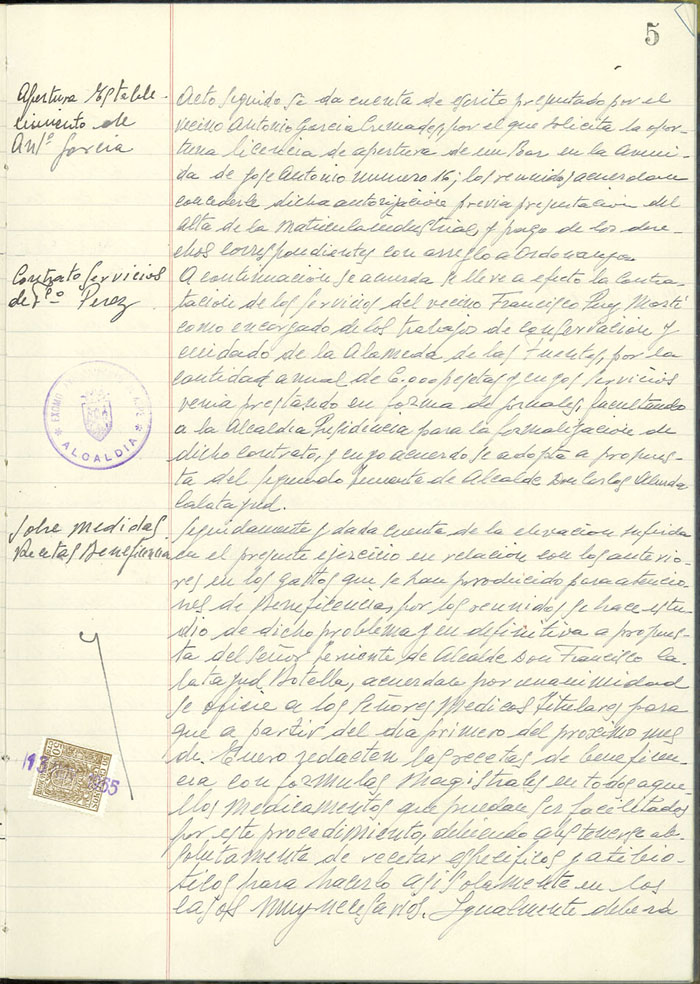 5
Apertura Estable-
cimiento de
Antº García
Acto seguido se da cuenta de escrito presentado por el
vecino Antonio Garcia Cremades, por el que solicita la opor-
tuna licencia de apertura de un Bar en la Aveni-
da de Jose Antonio numero 16; los reunidos acuerdan
concederle dicha autorizacion previa presentacion del
alta de la Matricula industrial, y pago de los dere-
chos correspondientes con arreglo a Ordenanza.
Contrato Servicios
de Fcº Perez
A continuación se acuerda se lleve a efecto la Contra-
tación de los Servicios del vecino Francisco
como encargado de los trabajos de conservacion y
cuidado de la Alameda de las Fuentes, por la
cantidad anual de 6.000 pesetas y cuyos servicios
venia prestando en forma de jornales, facultando
a la Alcaldia Presidencia para la formalización de
dicho contrato, y cuyo acuerdo se adopta a propues-
ta del Segundo Teniente de Alcalde Don Carlos
Calatayud.
ALCALDIA
Sobre medidas
Recetas Beneficencia
Seguidamente y dada cuenta de la elevacion sufrida
en el presente ejercicio en relacion con los anterio-
res en los gastos que se han porducido para atencio-
nes de Beneficencia, por los reunidos se hace estu-
dio de dicho problema y en definitiva a propues-
ta del Señor Teniente de Alcalde Don Francisco Ca-
latayud Botella, acuerdan por unanimidad
se oficie a los Señores Medicos Titulares para
que a partir del dia primero del proximo mes
de Enero redacten las recetas de beneficen-
cia con formulas Magistrales en todos aque-
llos medicamentos que puedan ser facilitados
por este procedimiento, debiendo abstenerse ab-
solutamente de recetar especificos y antibio-
ticos para hacerlo asi solamente en los
casos muy necesarios. Igualmente deberá
1965